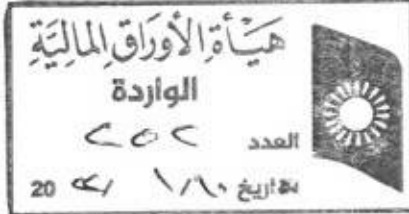 هَيْأَةِ الأَوْرَاقِ المَالِيَّةِ
الواردة
العدد ٢٥٢
بتاريخ ١/١٠ / 20